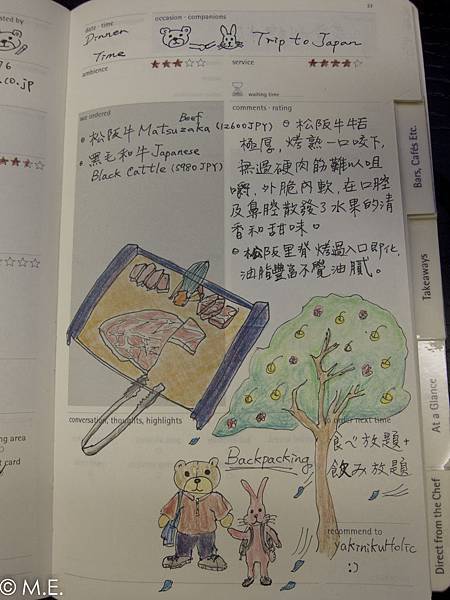 33
sted by
date · time
occasion · companions
Dinner
Time
Trip to Japan
76
.co.jp
ambience
service
waiting time
we ordered
comments · rating
Beef
松阪牛 Matsuzaka (12600JPY)
黑毛和牛 Japanese
Black Cattle (5980JPY)
松阪牛牛舌
極厚,烤熟一口咬下,
無過硬肉筋難以咀
嚼,外脆內軟,在口腔
及鼻腔散發了水果的清
香和甜味。
松阪里脊烤過入口即化,
油脂豐富不覺油膩。
conversation, thoughts, highlights
to order next time
食べ放題+
飲み放題
Backpacking
ng area
t card
recommend to
yakinikuHolic
:)
Bars, Cafés Etc.
Takeaways
At a Glance
Direct from the Chef
© M.E.